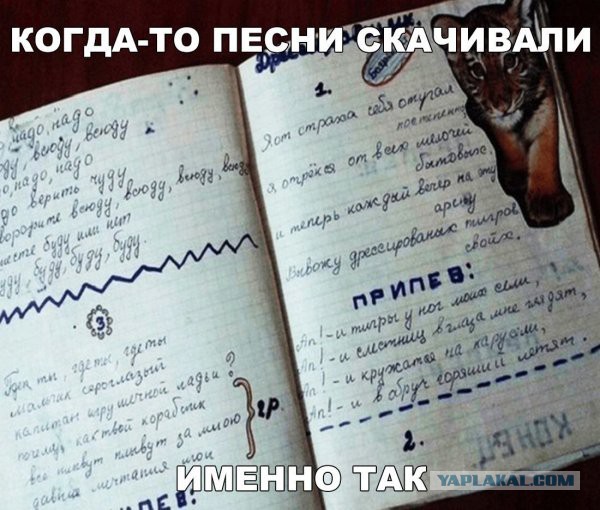 КОГДА-ТО ПЕСНИ СКАЧИВАЛИ
надо, надо
всюду, всюду
надо, надо
верить чуду
всюду, всюду, всюду, всюду
буду или нет
буду, буду, буду.
3
Где ты, где ты, где ты
мальчик сероглазый
капитан игрушечной ладьи?
как твой кораблик
все плывут плывут за мною
давние мечтания мои
2р.
ПЕВ:
1.
Я от страха себя отучал
постепенно
Я отрёкся от всех мелочей
бытовых
и теперь каждый вечер на эту
арену
Вывожу дрессированных тигров
своих.
ПРИПЕВ:
Ап!-и тигры у ног моих сели,
Ап!-и с лестниц в глаза мне глядят,
Ап! - и кружатся на карусели,
Ап! - и в обруч горящий летят.
2.
КОНЕЦ
ИМЕННО ТАК
YAPLAKAL.COM